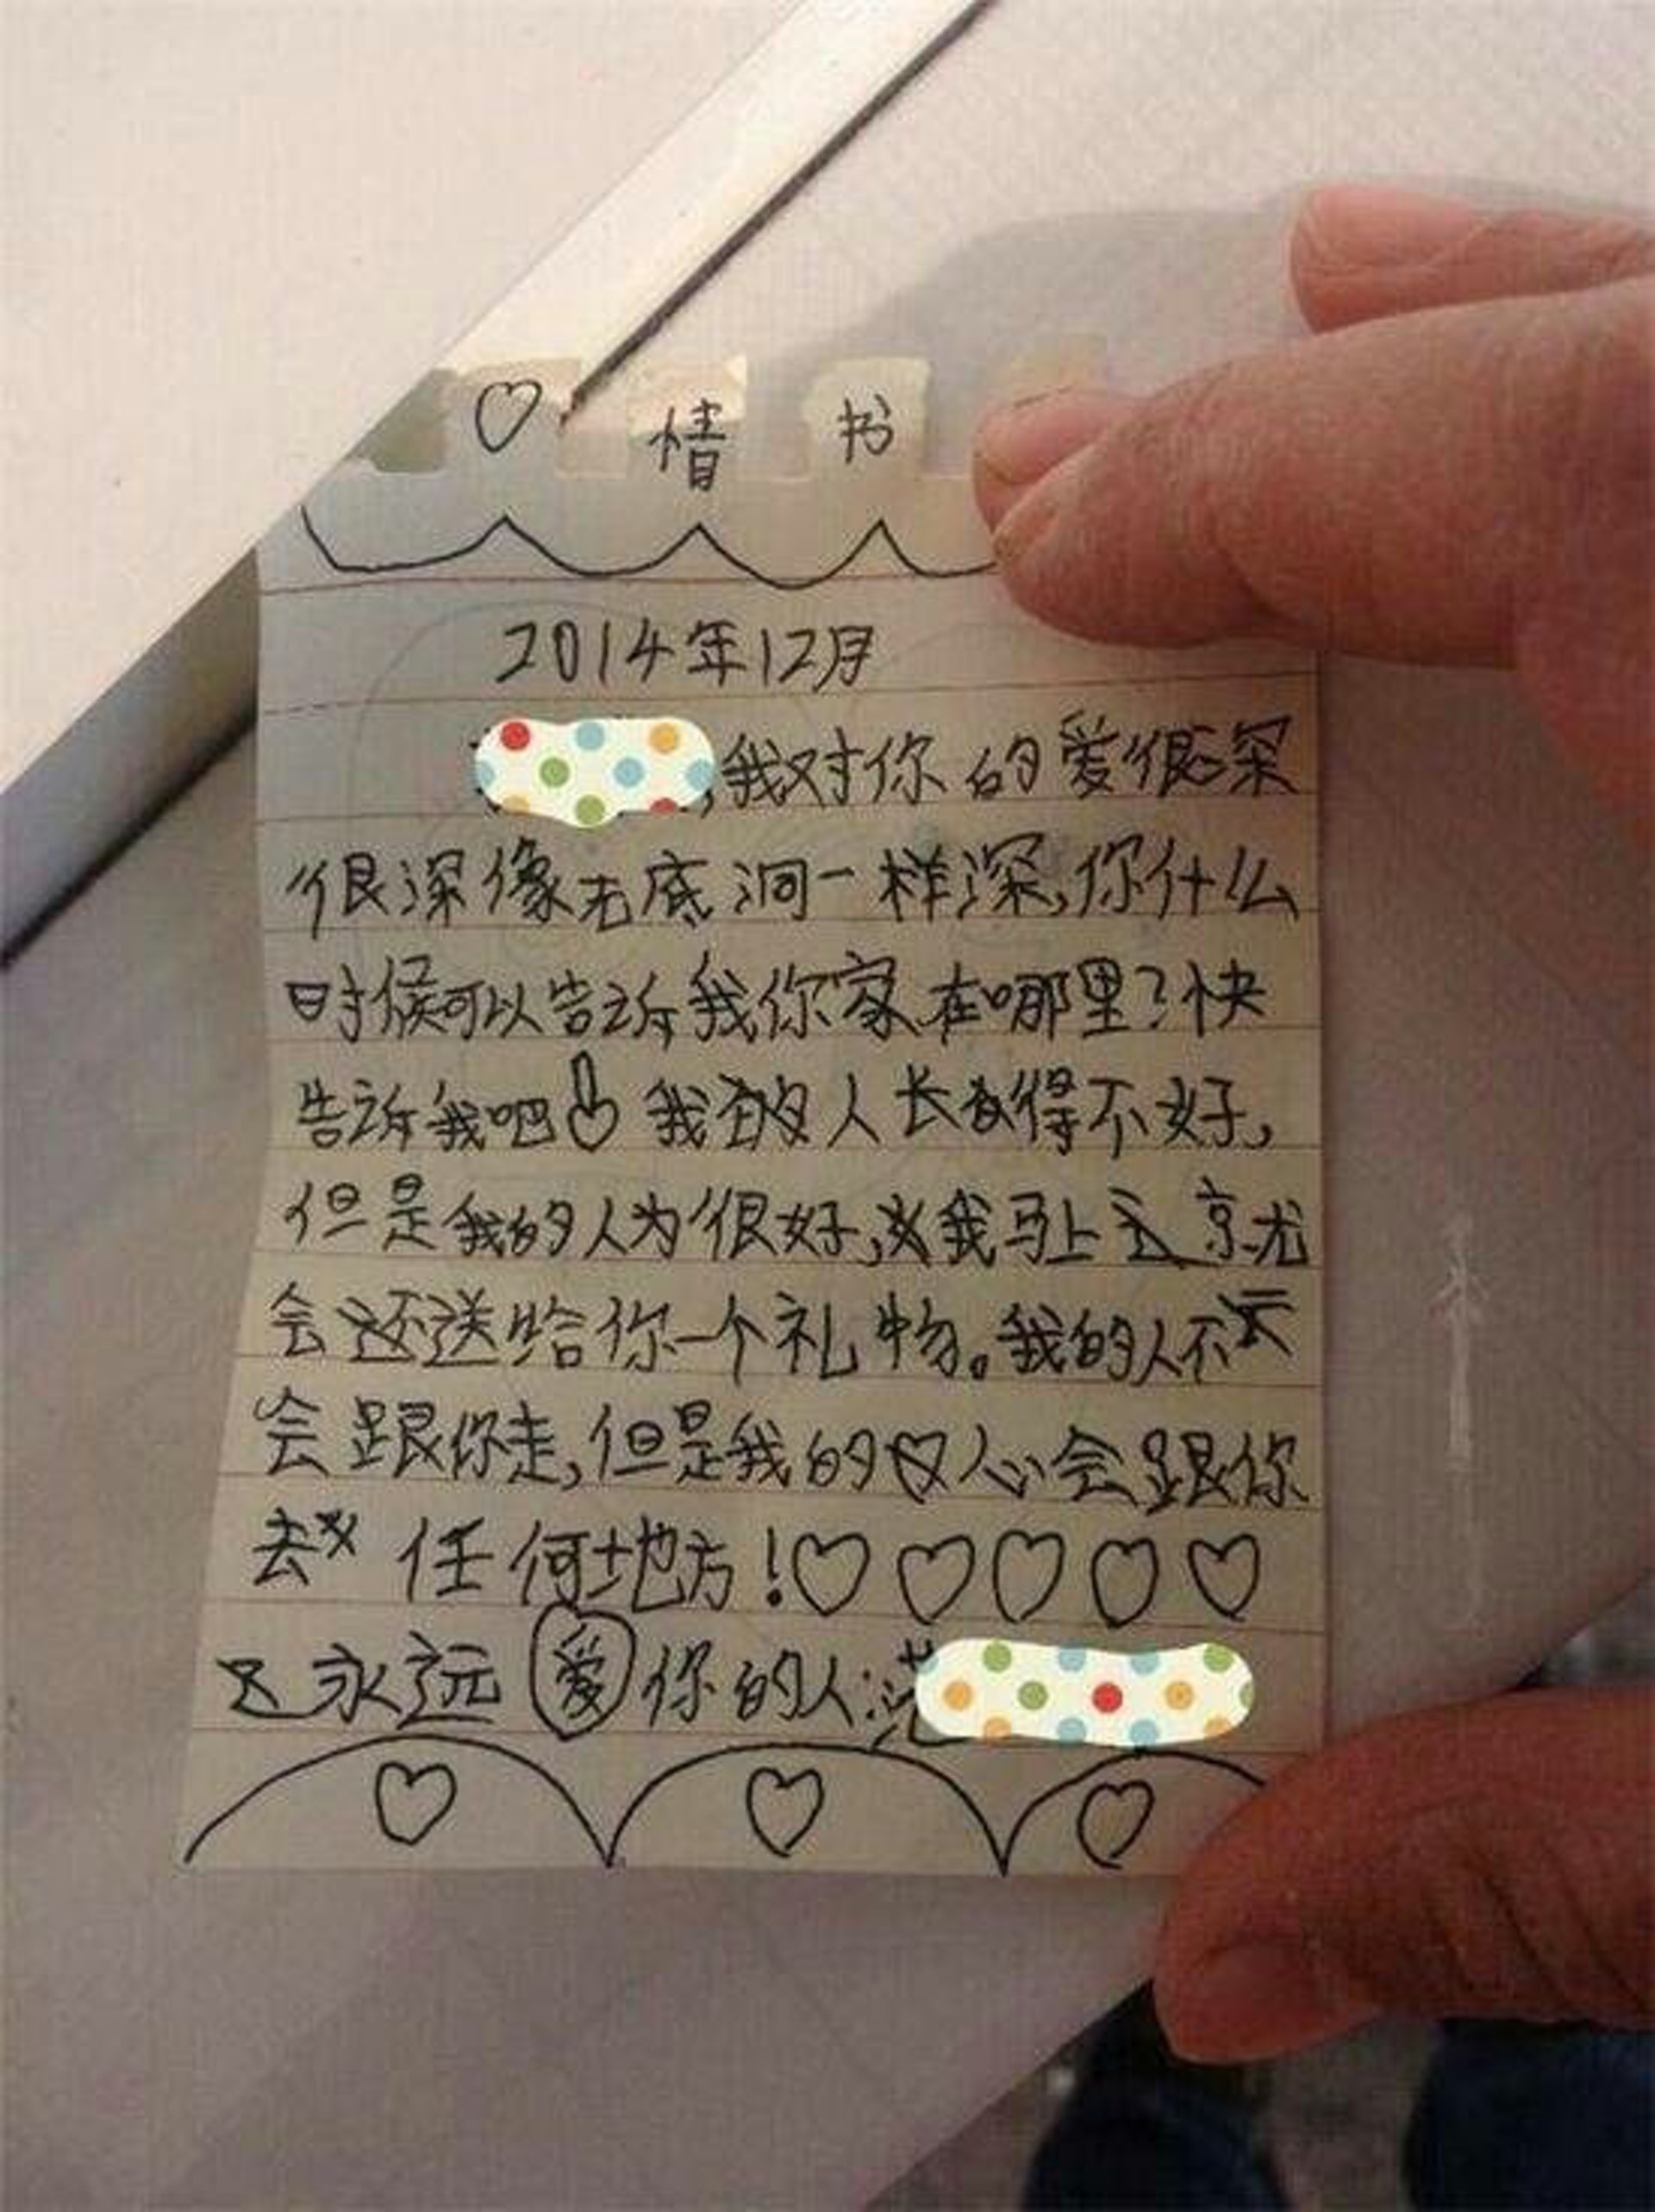 ♡ 情 书
2014年12月
,我对你的爱很深
很深像无底洞一样深,你什么
时候可以告诉我你家在哪里?快
告诉我吧 我 人长得不好,
但是我的人为很好,我马上 就
会还送给你一个礼物。我的人不
会跟你走,但是我的 心会跟你
去 任何地方!♡♡♡♡♡
永远爱你的人:范